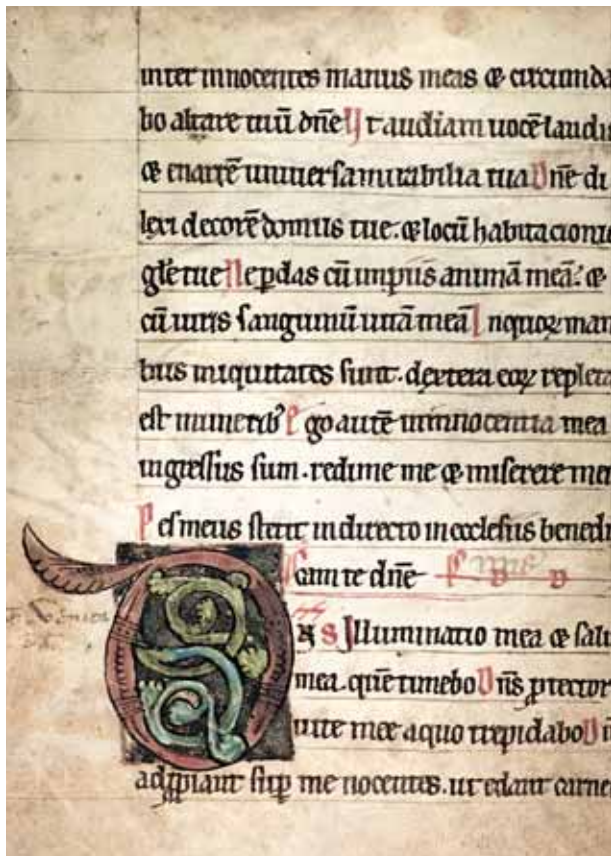 inter innocentes manus meas & circumda
bo altare tuū dn̄e Ut audiam uocē laudis
& enarrē uniuersa mirabilia tua Dn̄e di
lexi decorē domus tue. & locū habitacionis
glē tue Ne ꝑdas cū impiis animā meā: &
cū uiris sanguinū uitā meā In quoꝝ man
bus iniquitates sunt. dextera eoꝝ repleta
est munerib; Ego autē in innocentia mea
ingressus sum. redime me & miserere mei
Pes meus stetit in directo in ecclesiis benedi
cam te dn̄e
ns Illuminatio mea & salu
mea. quē timebo Dn̄s ꝓtector
uite mee a quo trepidabo D
apꝓpiant suꝑ me nocentes. ut edant carne